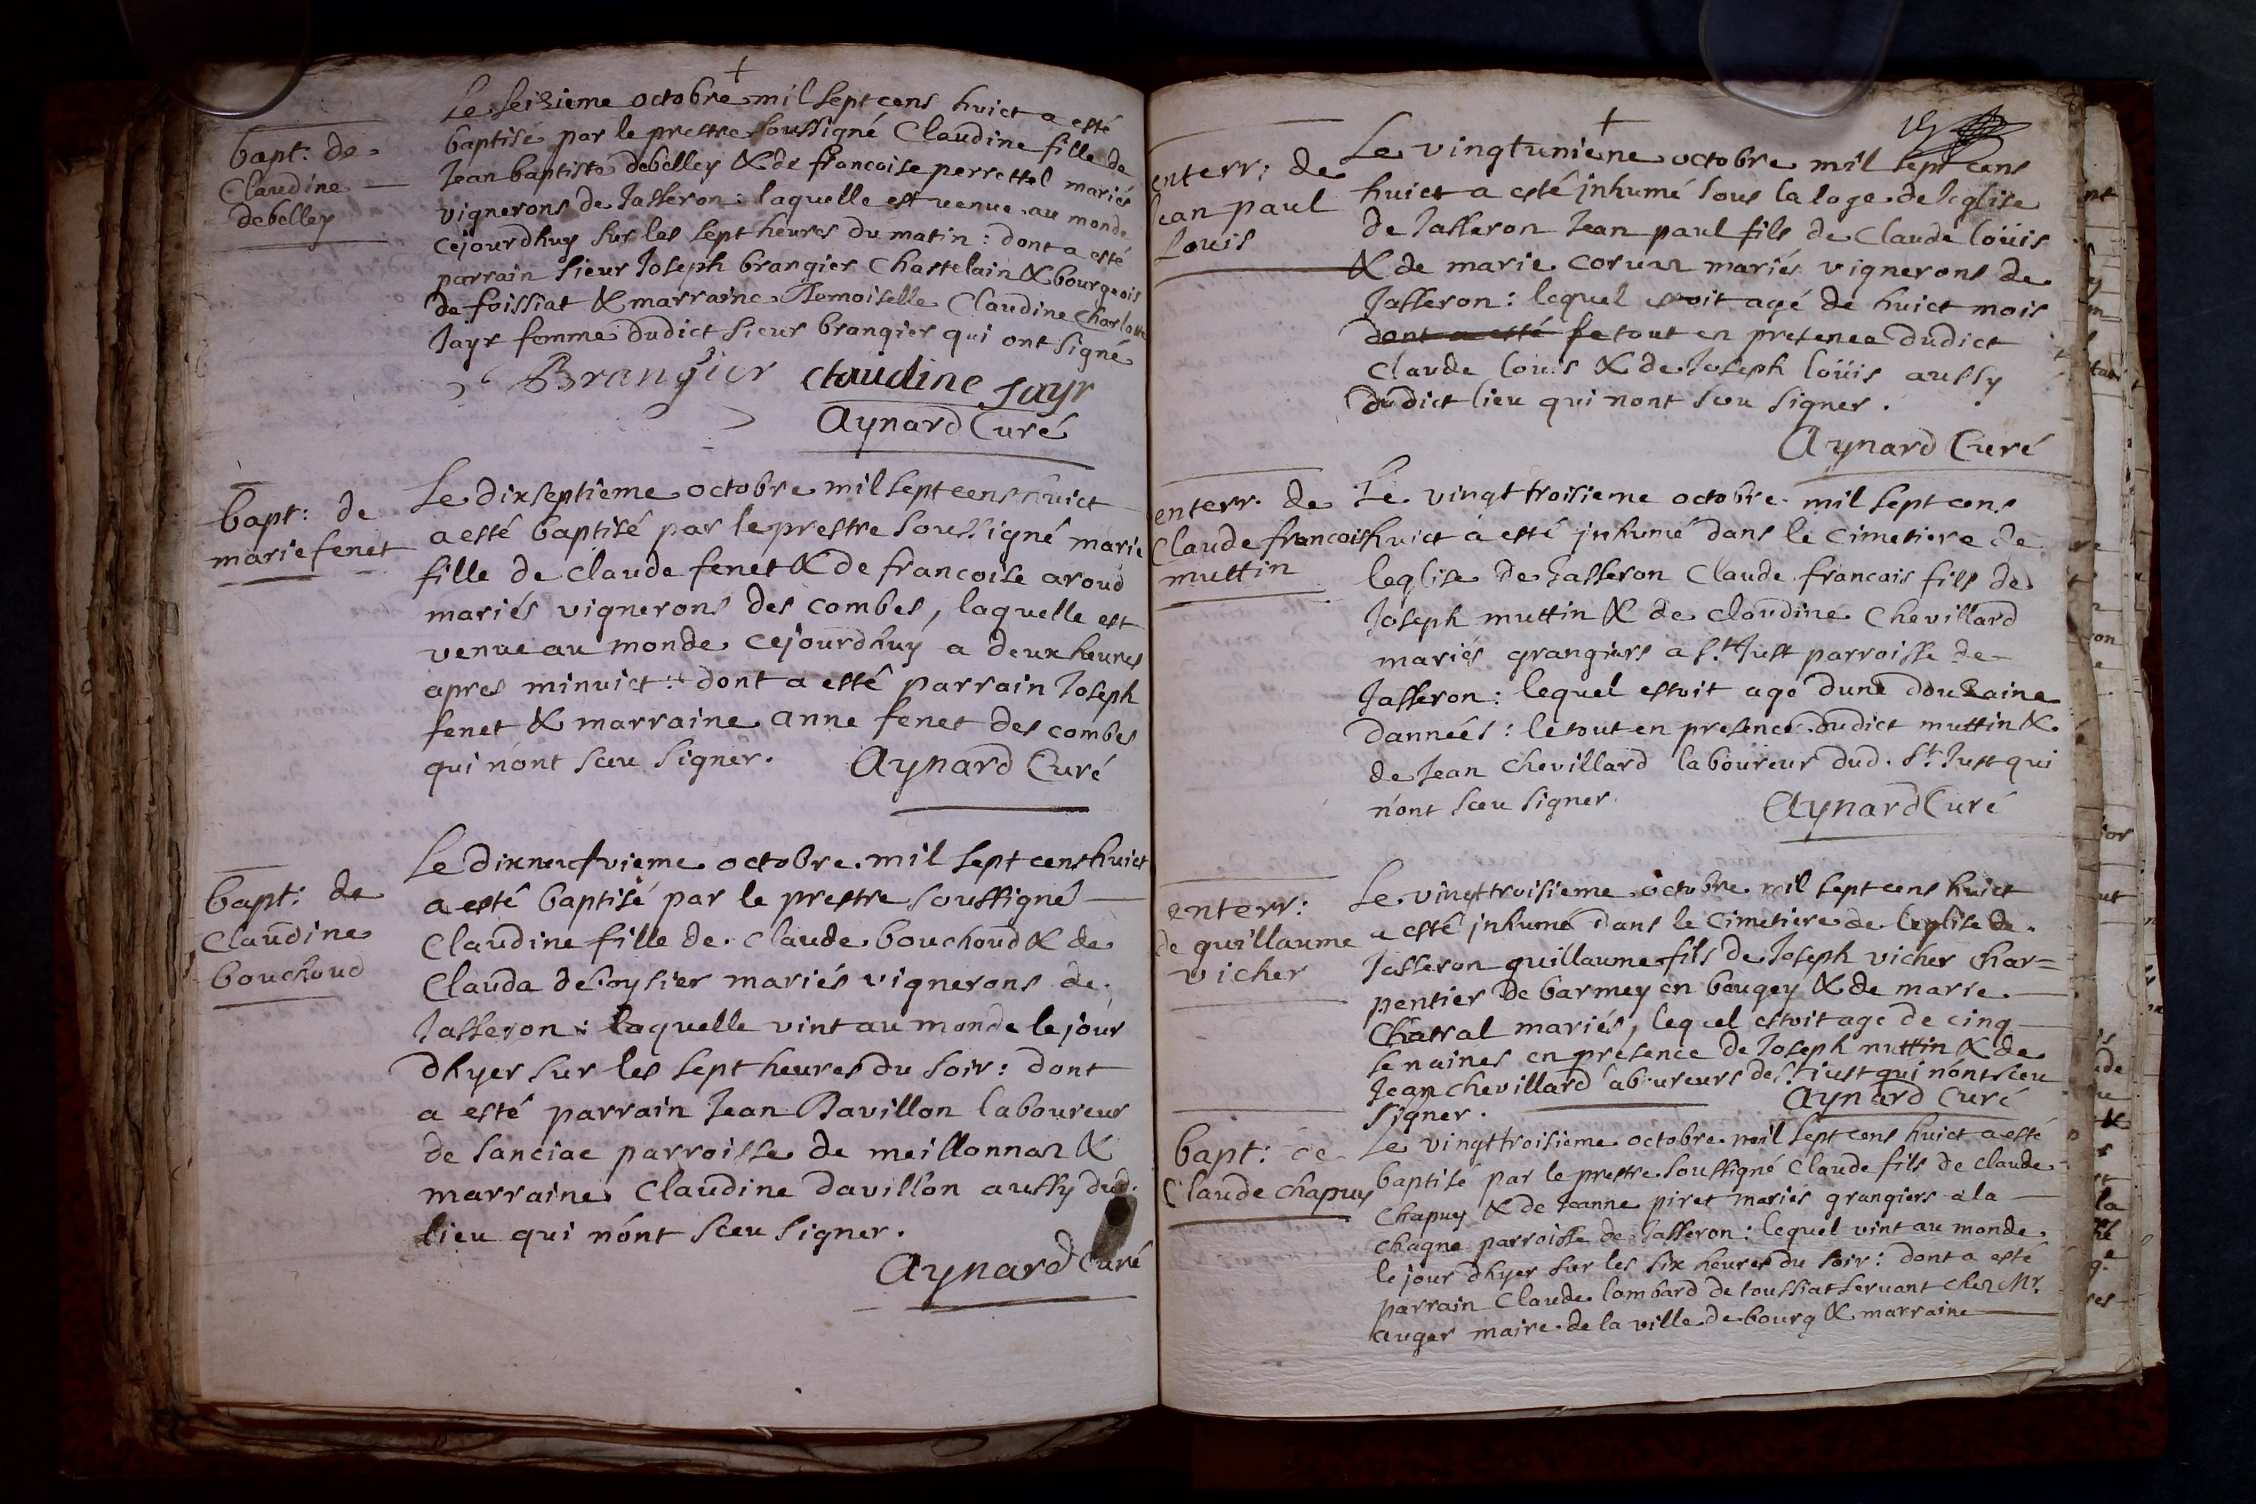 bapt: de
Claudine
debelley
Le seizieme octobre mil sept cens huict a esté
baptisé par le prestre soussigné Claudine fille de
Jean baptiste debelley & de francoise perrettel mariés
vignerons de Jasseron : laquelle est venue au monde
cejourdhuy sur les sept heures du matin : dont a esté
parrain sieur Joseph brangier Chastelain & bourgeois
de foissiat & marraine Demoiselle Claudine Charlotte
Jayr femme dudict sieur brangier qui ont signé
Brangier Claudine Jayr
Aynard Curé
bapt: de
marie fenet
Le dixseptieme octobre mil sept cens huict
a esté baptisé par le prestre soussigné marie
fille de claude fenet & de francoise aroud
mariés vignerons des combes, laquelle est
venue au monde cejourdhuy a deux heures
apres minuict : dont a esté parrain Joseph
fenet & marraine anne fenet des combes
qui n'ont sceu signer. Aynard Curé
bapt: de
Claudine
bouchoud
Le dixneufvieme octobre mil sept cens huict
a esté baptisé par le prestre soussigné
Claudine fille de claude bouchoud & de
Clauda deboysier mariés vignerons de
Jasseron : laquelle vint au monde le jour
dhyer sur les sept heures du soir : dont
a esté parrain Jean Davillon laboureur
de sanciac parroisse de meillonnaz &
marraine Claudine davillon aussy dud.
lieu qui n'ont sceu signer.
Aynard Curé
enterr: de
Jean paul
Louis
Le vingtunieme octobre mil sept cens
huict a esté jnhumé sous la loge de leglise
de Jasseron Jean paul fils de Claude loüis
& de marie coruaz mariés vignerons de
Jasseron : lequel estoit agé de huict mois
dont a esté le tout en presence dudict
Claude louis & de Joseph loüis aussy
dudict lieu qui nont sceu signer.
Aynard Curé
enterr. de
Claude francois
muttin
Le vingt troisieme octobre mil sept cens
huict a esté jnhumé dans le cimetiere de
leglise de Jasseron Claude francais fils de
Joseph muttin & de Claudine Chevillard
mariés grangiers a St Just parroisse de
Jasseron : lequel estoit agé dune douzaine
dannéés : le tout en presence dudict muttin &
de Jean chevillard laboureur dud. St Just qui
n'ont sceu signer.
Aynard Curé
enterr:
de guillaume
vicher
Le vingt troisieme octobre mil sept cens huict
a esté jnhumé dans le cimetiere de leglise de
Jasseron guillaume fils de Joseph vicher char=
pentier de barmey en bougey & de marie
Chatral mariés, lequel estoit agé de cinq
semaines en presence de Joseph muttin & de
Jean chevillard laboureurs de St just qui n'ont sceu
signer. Aynard Curé
bapt: de
Claude chapuy
Le vingt troisieme octobre mil sept cens huict a esté
baptisé par le prestre soussigné Claude fils de claude
Chapuy & de Jeanne piret mariés grangiers a la
chagne parroisse de Jasseron : lequel vint au monde
le jour dhyer sur les six heures du soir : dont a esté
parrain Claude lombard de toussiat servant chez Mr.
auger maire de la ville de bourg & marraine